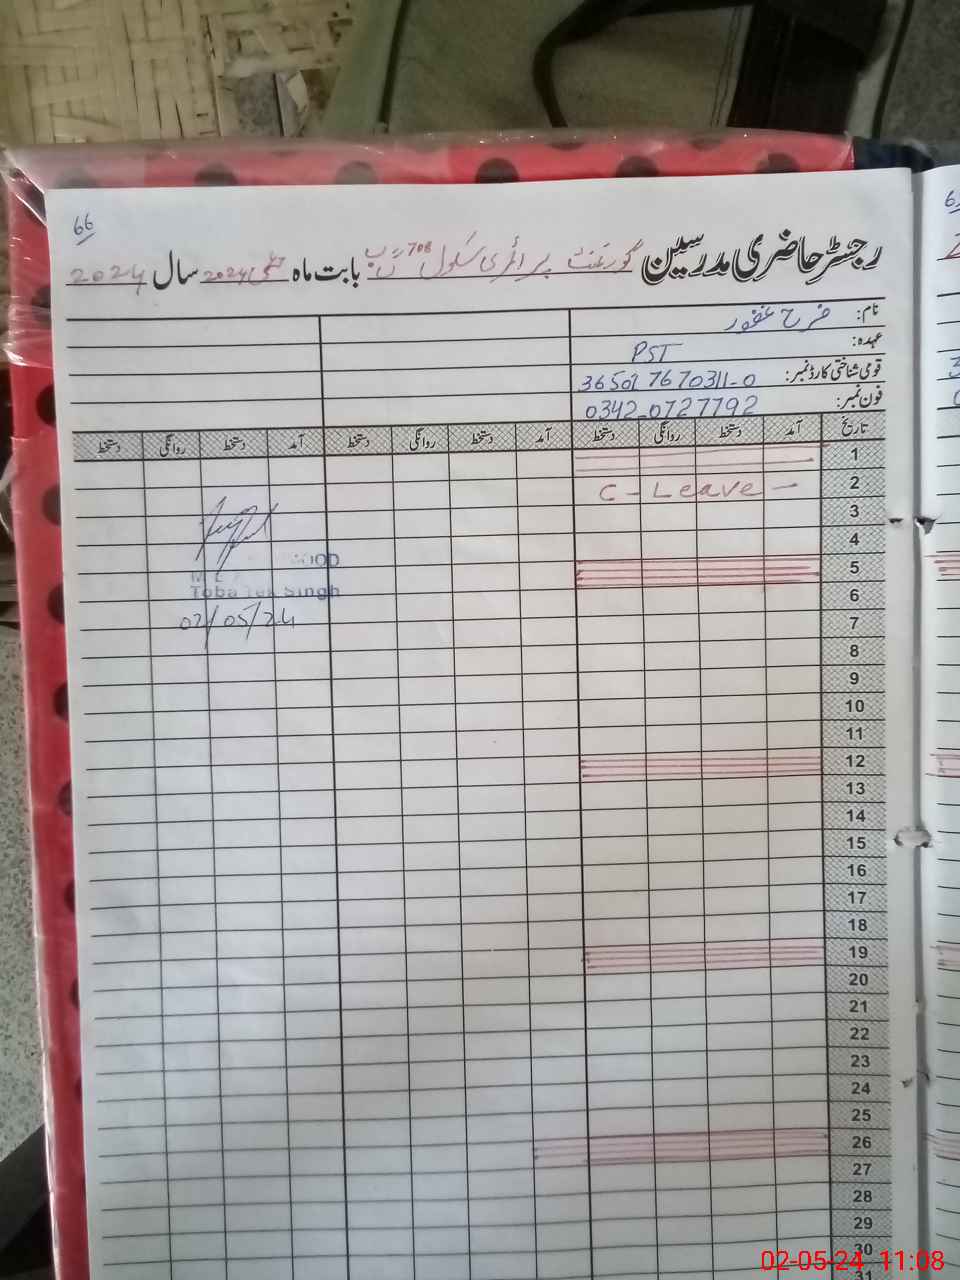 66
رجسٹر حاضری مدرسین گورنمنٹ پرائمری سکول 708 گ ب بابت ماہ مئی 2024 سال 2024
نام: فرح غفور
عہدہ: PST
قومی شناختی کارڈ نمبر: 36502 7670311-0
فون نمبر: 0342-0727792
تاریخ آمد دستخط روانگی دستخط آمد دستخط روانگی دستخط آمد دستخط روانگی دستخط
1
2 C - Leave -
3
4
5
6
7
8
9
10
11
12
13
14
15
16
17
18
19
20
21
22
23
24
25
26
27
28
29
30
31
Toba Tek Singh
02/05/24
02-05-24 11:08